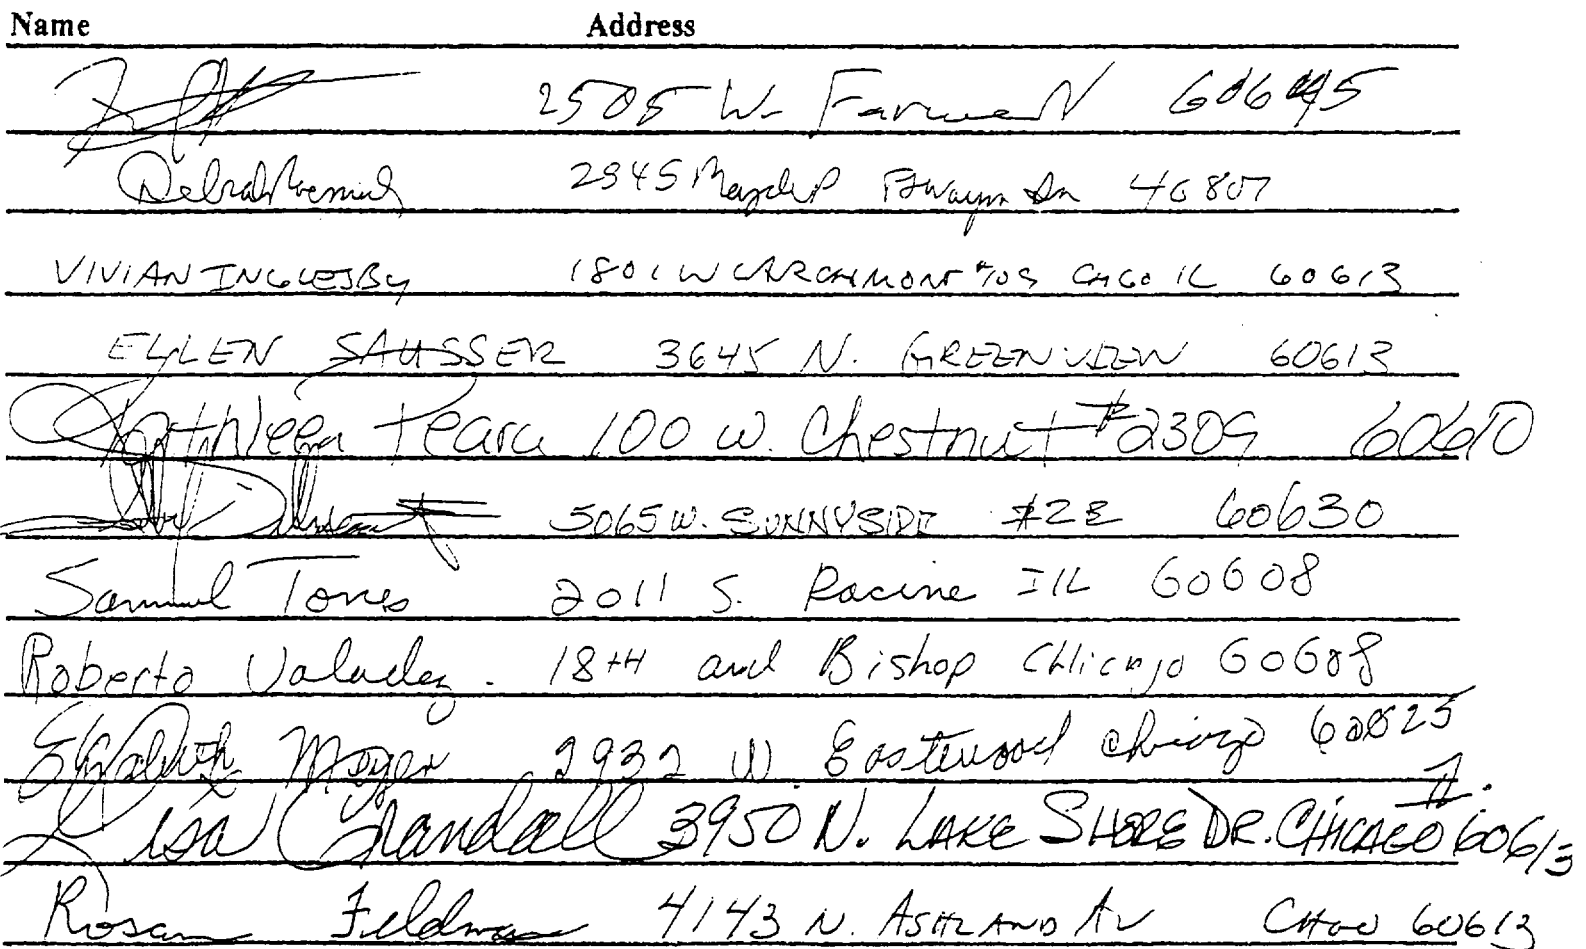 Name Address
2505 W. Farwell 60645
Debrah 2945 Ft Wayne In 46807
VIVIAN INGLESBY 1801 W LARCHMONT #709 CHGO IL 60613
EYLEN SAUSSER 3645 N. GREENVIEW 60613
Kathleen 100 W. Chestnut #2309 60610
5065 W. SUNNYSIDE #2E 60630
Samuel Torres 2011 S. Racine Ill 60608
Roberto Valadez. 18th and Bishop Chicago 60608
Elizabeth Moyer 2932 W Eastwood Chicago 60625
Lisa Crandall 3950 N. LAKE SHORE DR. CHICAGO 60613
Feldman 4143 N. ASHLAND AV CHGO 60613